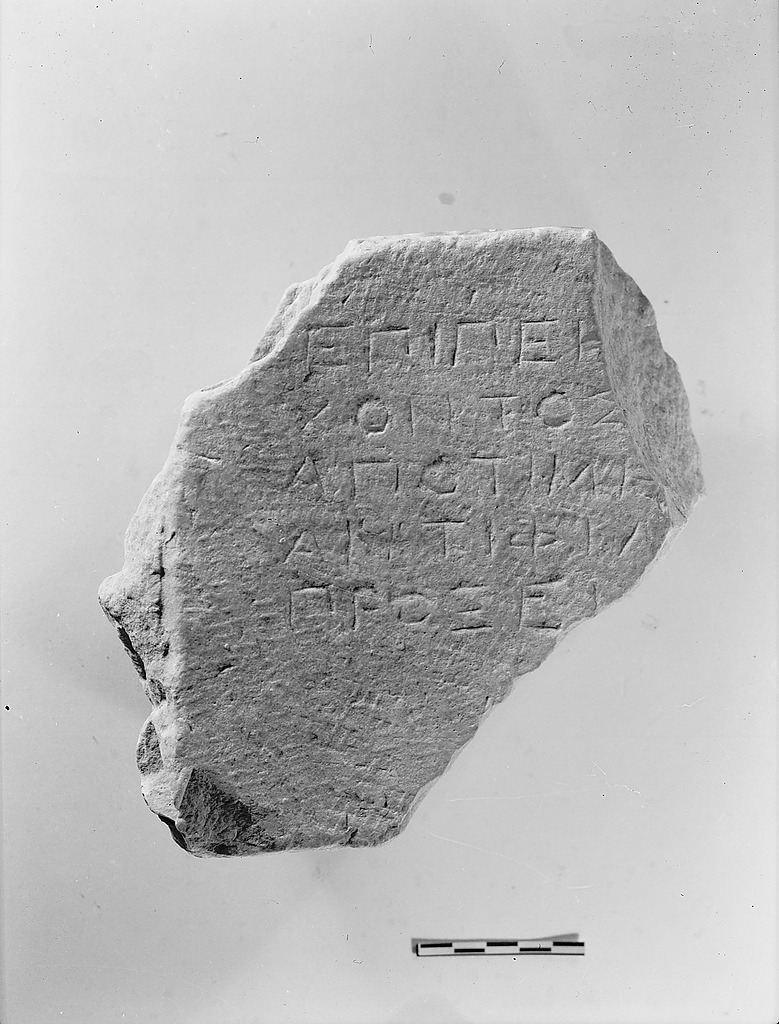 ΕΠΙΠΕΙ
ΧΟΝΤΟΣ
ΑΠΟΤΙΜΗ
ΑΝΤΙΦΙΛ
ΠΡΟΞΕΙ